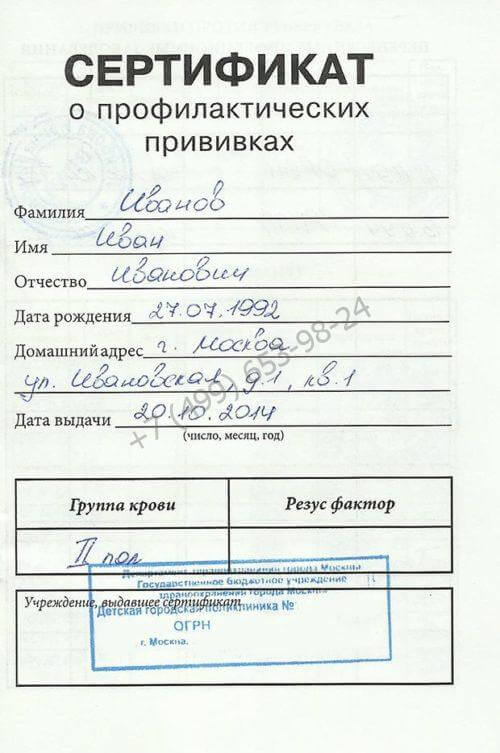 СЕРТИФИКАТ
о профилактических
прививках
Фамилия Иванов
Имя Иван
Отчество Иванович
Дата рождения 27.07.1992
Домашний адрес г. Москва
ул. Ивановская, д.1, кв.1
Дата выдачи 20.10.2014
(число, месяц, год)
+7 (499) 653-98-24
Группа крови Резус фактор
II пол
Департамент здравоохранения города Москвы
Государственное бюджетное учреждение
здравоохранения города Москвы
Учреждение, выдавшее сертификат
Детская городская поликлиника №
ОГРН
г. Москва.